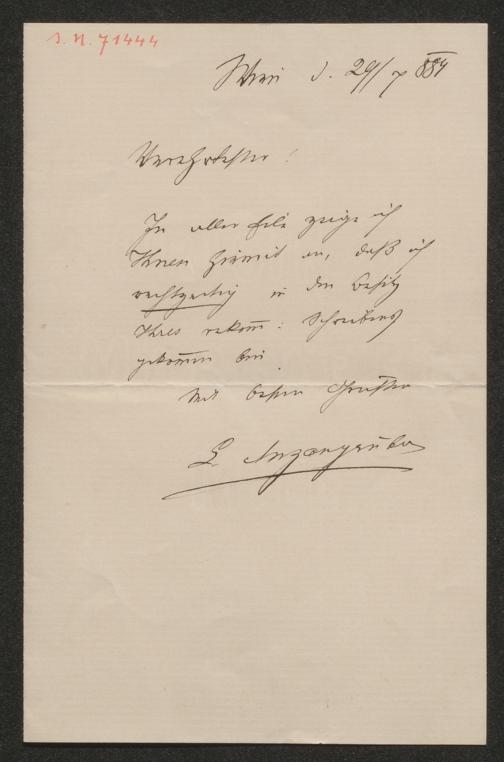 J. N. 71444
Wien d. 29/7 884
Verehrtester!
In aller Eile zeige ich
Ihnen hiemit an, daß ich
rechtzeitig in den Besitz
Ihres rekom̅: Schreibens
gekom̅en bin.
Mit besten Grüßen
L. Anzengruber